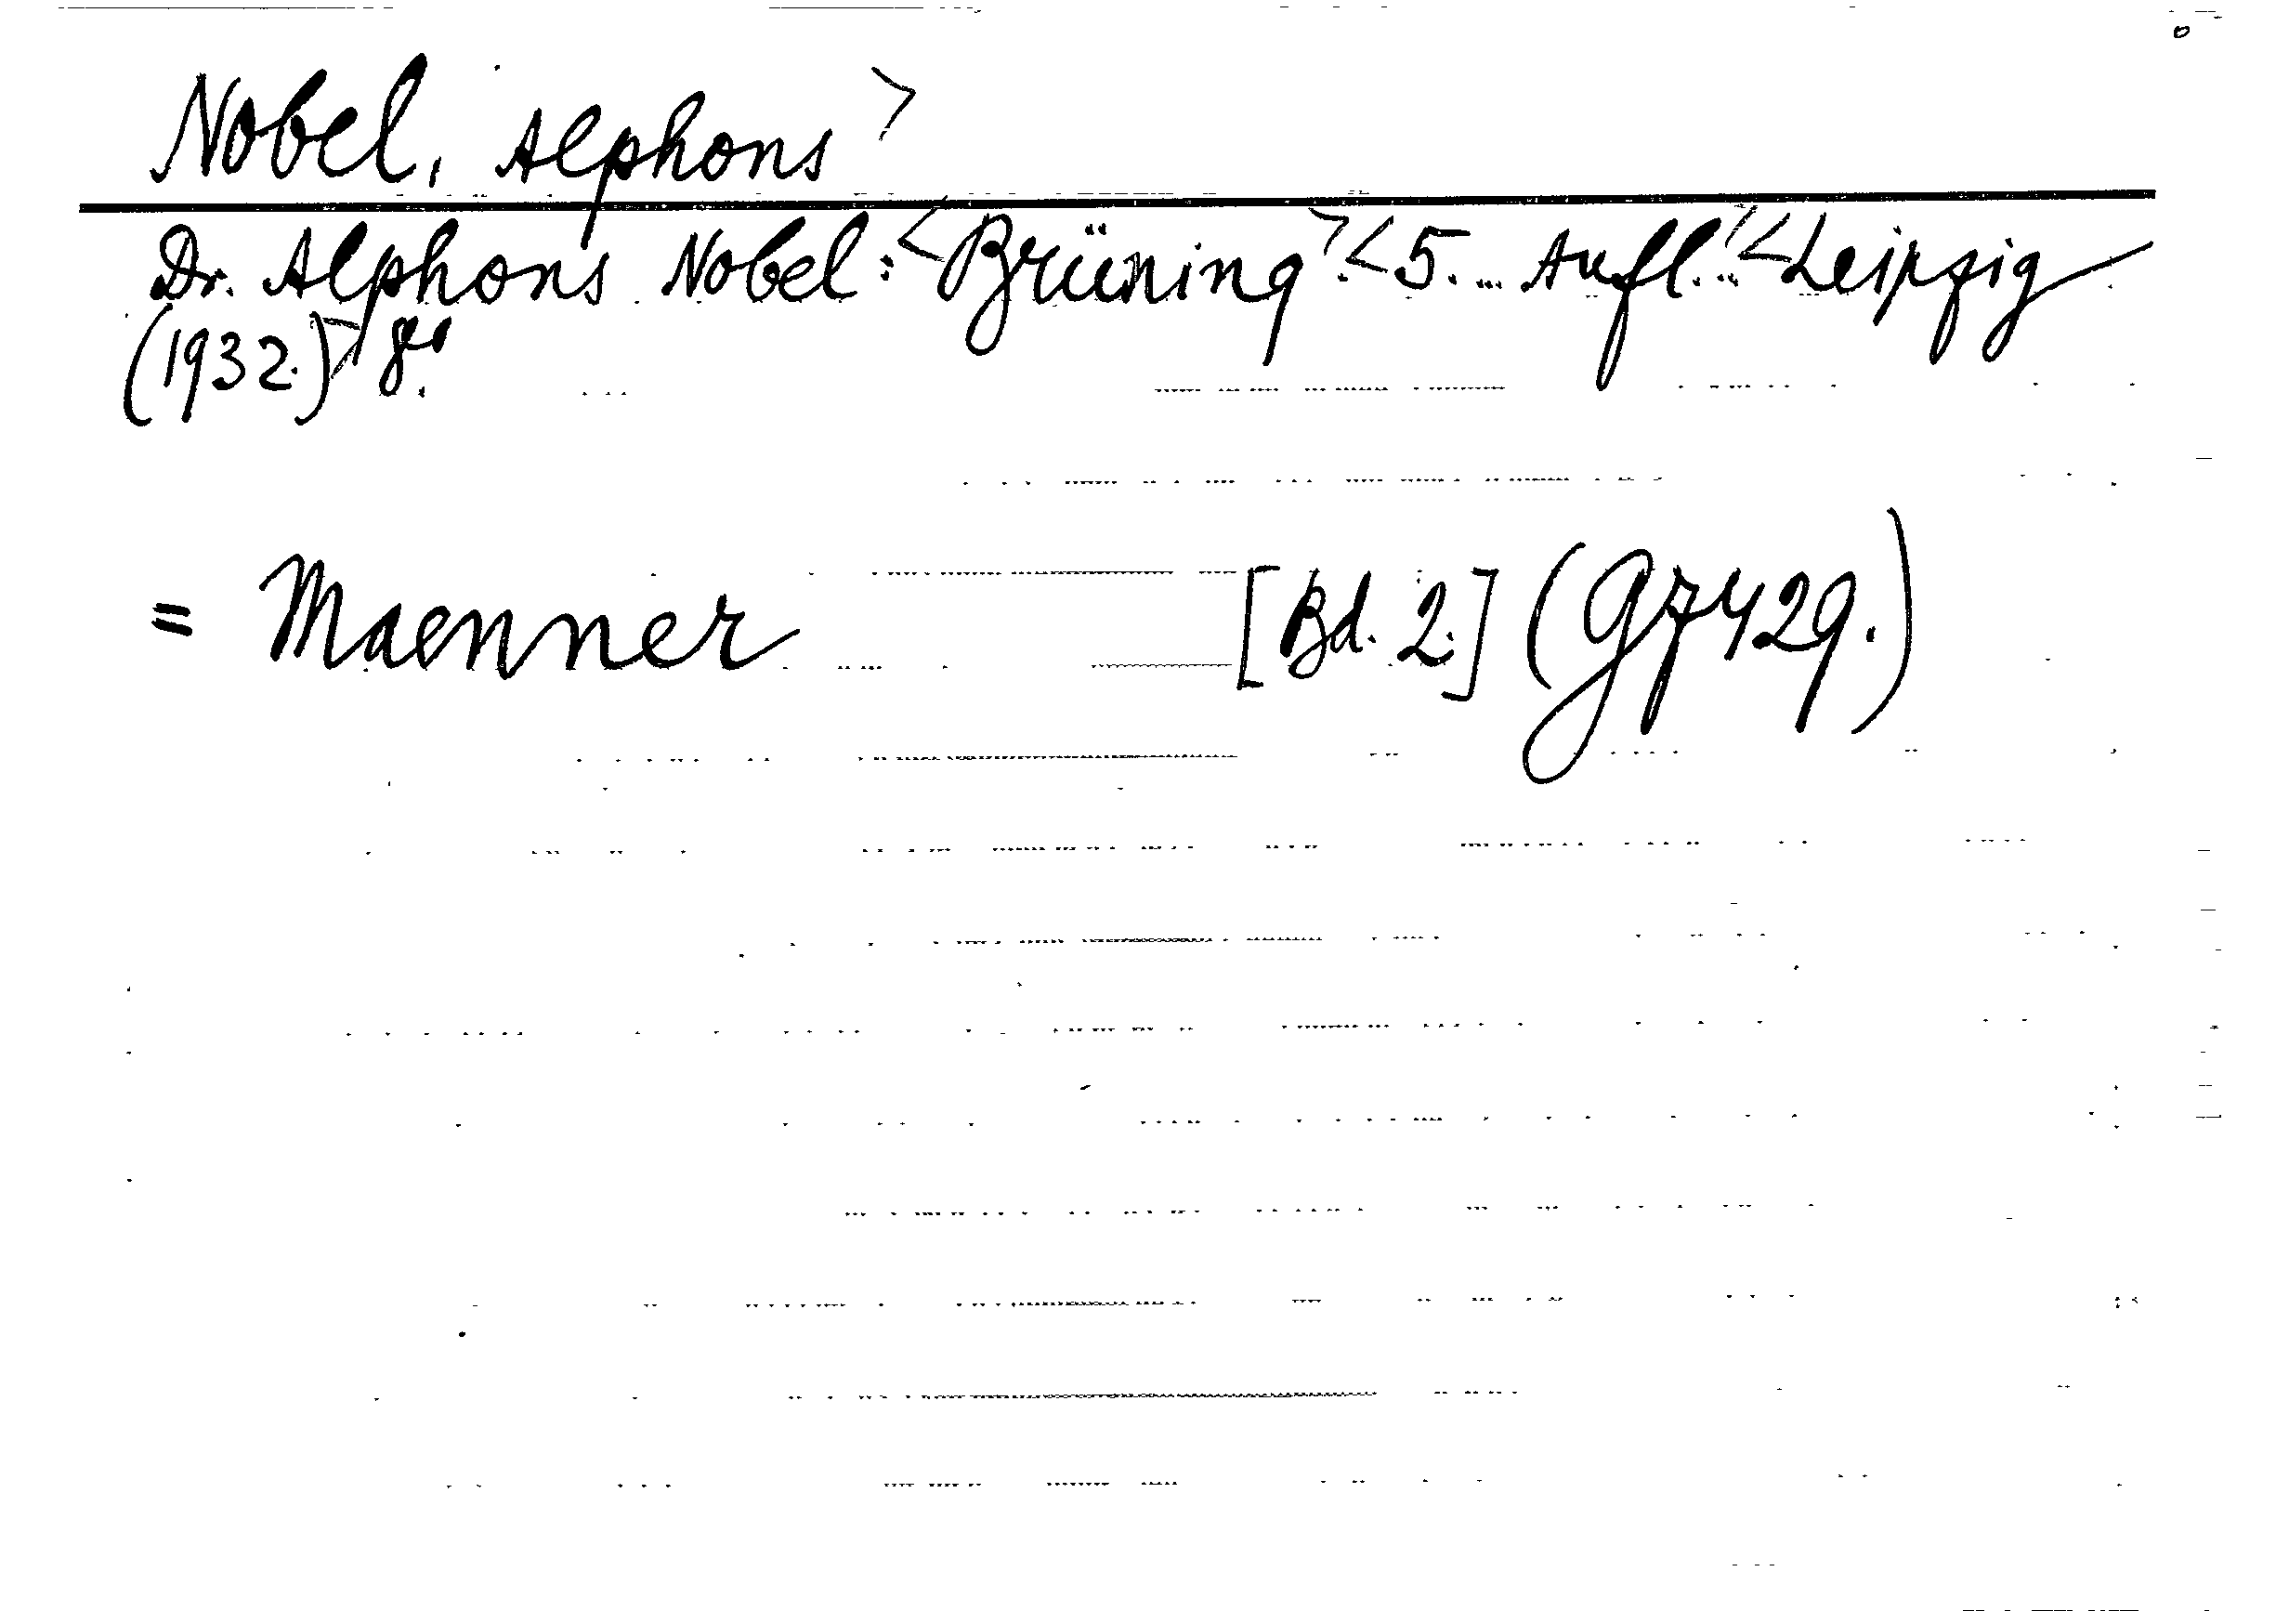 Nobel, Alphons>
Dr. Alphons Nobel: <Brüning>. <5. Aufl.> <Leipzig
(1932.)> 8°.
= Maenner [Bd. 2.] (Gz 429.)